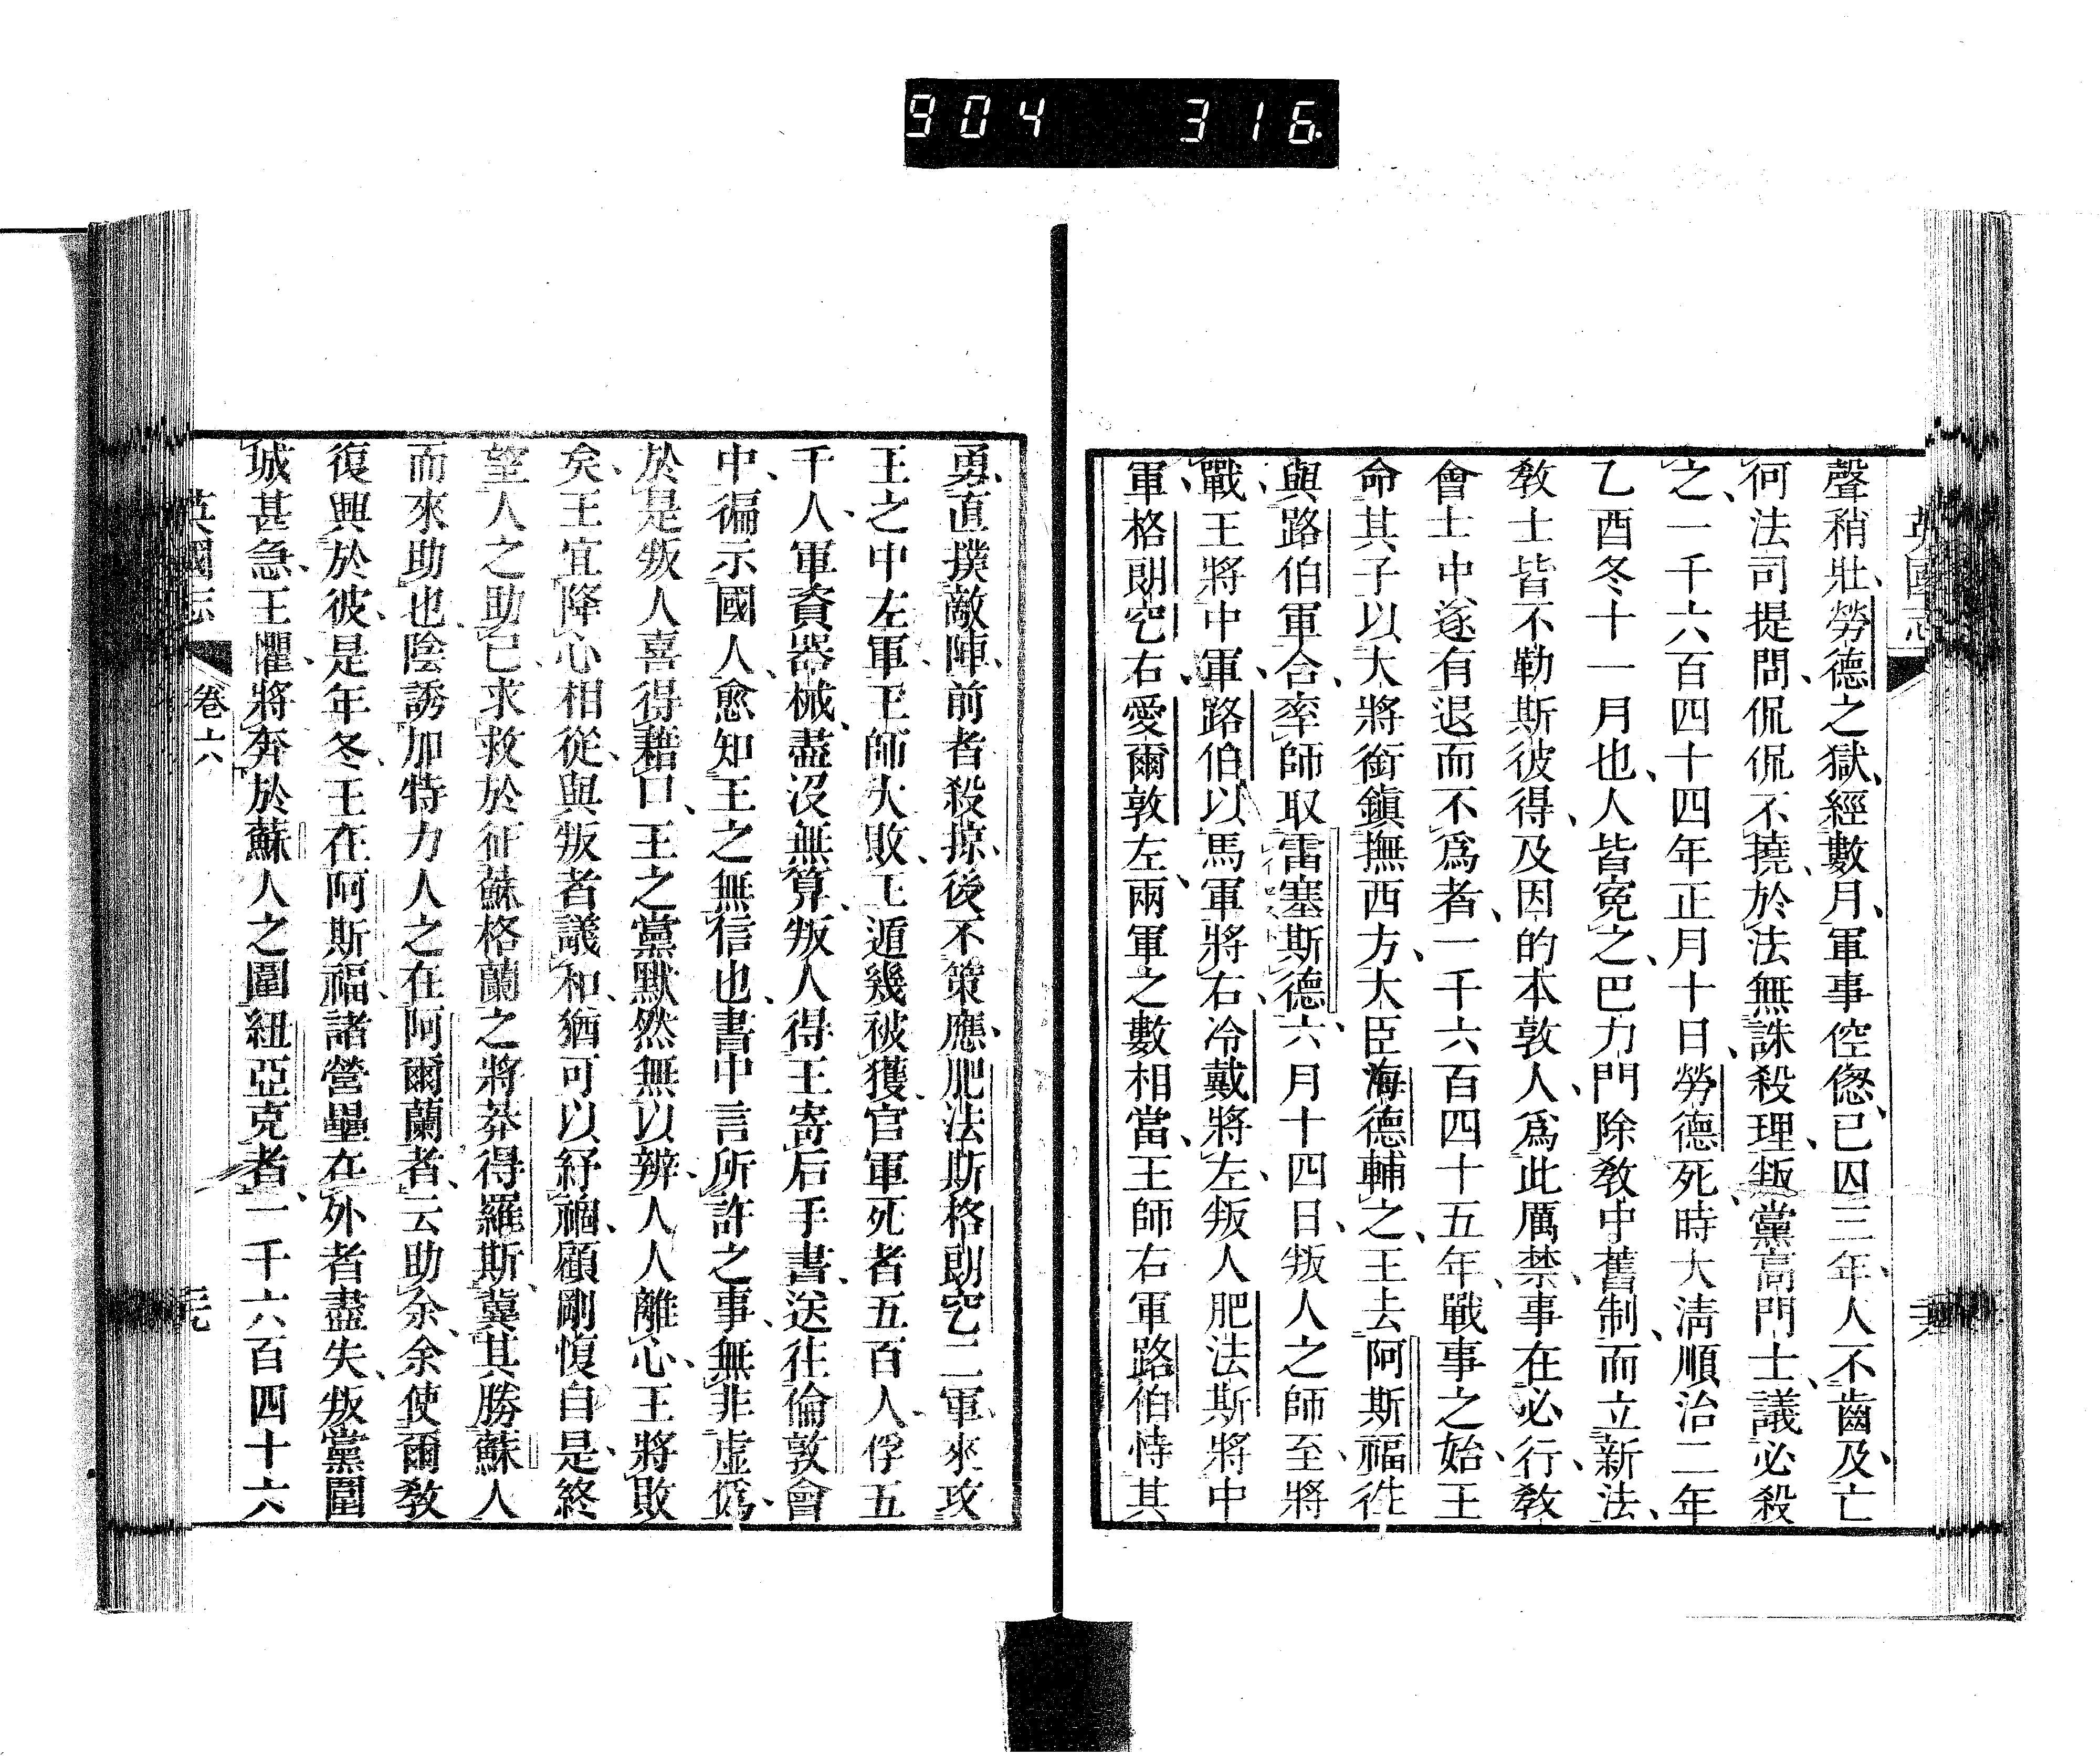 904 316.
英國志
聲稍壯、勞德之獄、經數月、軍事倥傯、已囚三年、人不齒及、亡
何法司提問侃侃不撓、於法無誅殺理、叛黨高門士議、必殺
之、一千六百四十四年正月十日、勞德死、時大淸順治二年
乙酉冬十一月也、人皆寃之、巴力門除敎中舊制、而立新法、
敎士皆不勒斯彼得、及因的本敦人、爲此厲禁、事在必行、敎
會士中、遂有退而不爲者、一千六百四十五年、戰事之始、王
命其子以大將銜鎭撫西方、大臣海德輔之、王去阿斯福徃
與路伯軍合、率師取雷塞斯德、六月十四日、叛人之師至、將
戰、王將中軍、路伯以馬軍將右、冷戴將左、叛人肥法斯將中
軍、格朗空右、愛爾敦左、兩軍之數相當、王師右軍路伯恃其
勇、直撲敵陣、前者殺掠、後不策應、肥法斯格朗空二軍來攻
王之中左軍、王師大敗、王遁幾被獲、官軍死者五百人、俘五
千人、軍資器械、盡沒無算、叛人得王寄后手書、送往倫敦會
中、徧示國人、愈知王之無信也、書中言所許之事、無非虛僞、
於是叛人喜得藉口、王之黨默然無以辨、人人離心、王將敗
矣、王宜降心相從、與叛者議和、猶可以紓禍、顧剛愎自是、終
望人之助己、求救於征蘇格蘭之將莽得羅斯、冀其勝蘇人
而來助也、陰誘加特力人之在阿爾蘭者、云助余、余使爾敎
復興於彼、是年冬、王在阿斯福、諸營壘在外者盡失、叛黨圍
城甚急、王懼、將奔於蘇人之圍紐亞克者、一千六百四十六
英國志 卷六 三九